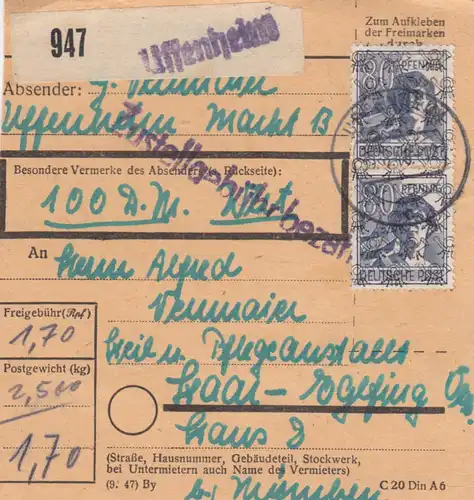 947
Uffenheim
Zum Aufkleben
der Freimarken
durch
Absender: J. Neumaier
Uffenheim Markt B
Zustellgebühr bezahlt
Besondere Vermerke des Absenders (s. Rückseite):
100 D.M. Wert
80 PFENNIG
DEUTSCHE POST
80 PFENNIG
DEUTSCHE POST
An Herrn Alfred
Neumaier
Heil u. Pflegeanstalt
Haar – Eglfing
Haus 2
Freigebühr (Rpf)
1,70
Postgewicht (kg)
2,500
1,70
(Straße, Hausnummer, Gebäudeteil, Stockwerk,
bei Untermietern auch Name des Vermieters)
(9. 47) By bei München C 20 Din A 6